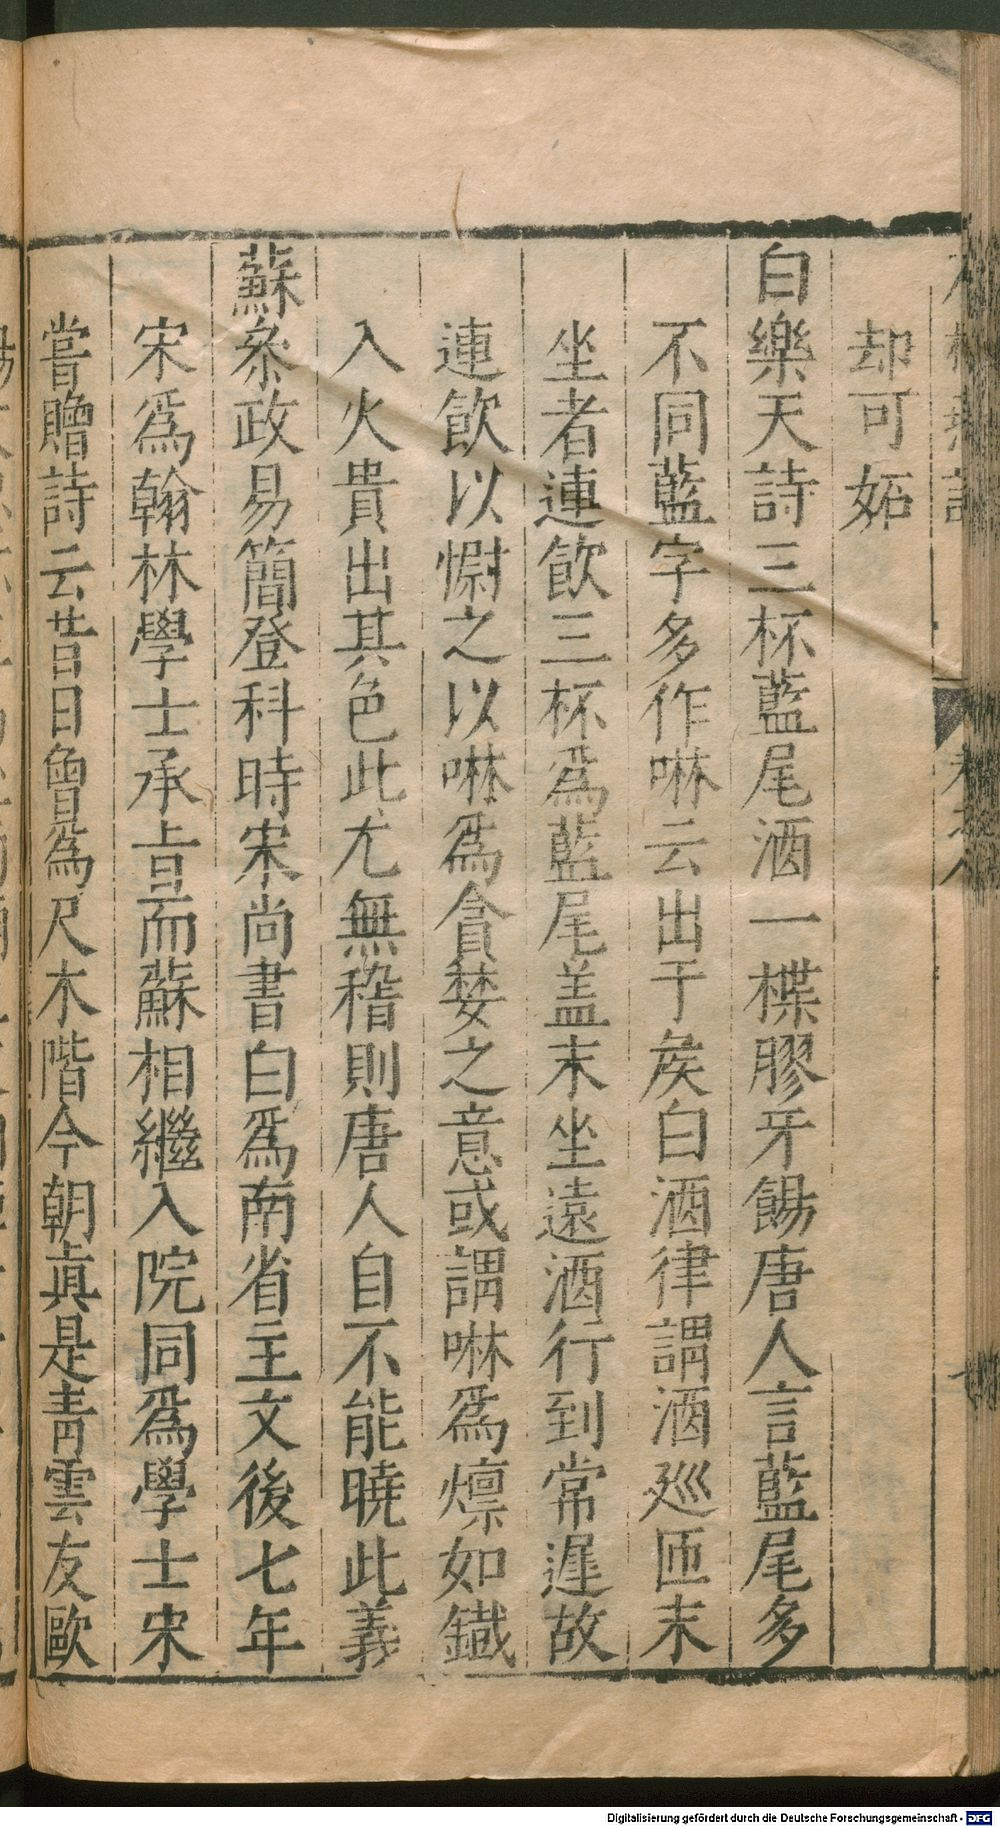 却可妬
白樂天詩三杯藍尾酒一楪膠牙餳唐人言藍尾多
不同藍字多作啉云出于矦白酒律謂酒廵匝末
坐者連飲三杯爲藍尾盖末坐遠酒行到常遲故
連飲以慰之以啉爲貪婪之意或謂啉爲燣如鐵
入火貴出其色此尤無稽則唐人自不能曉此義
蘇叅政易簡登科時宋尚書白爲南省主文後七年
宋爲翰林學士承旨而蘇相繼入院同爲學士宋
嘗贈詩云昔日曾爲尺木階今朝眞是青雲友歐
Digitalisierung gefördert durch die Deutsche Forschungsgemeinschaft - DFG